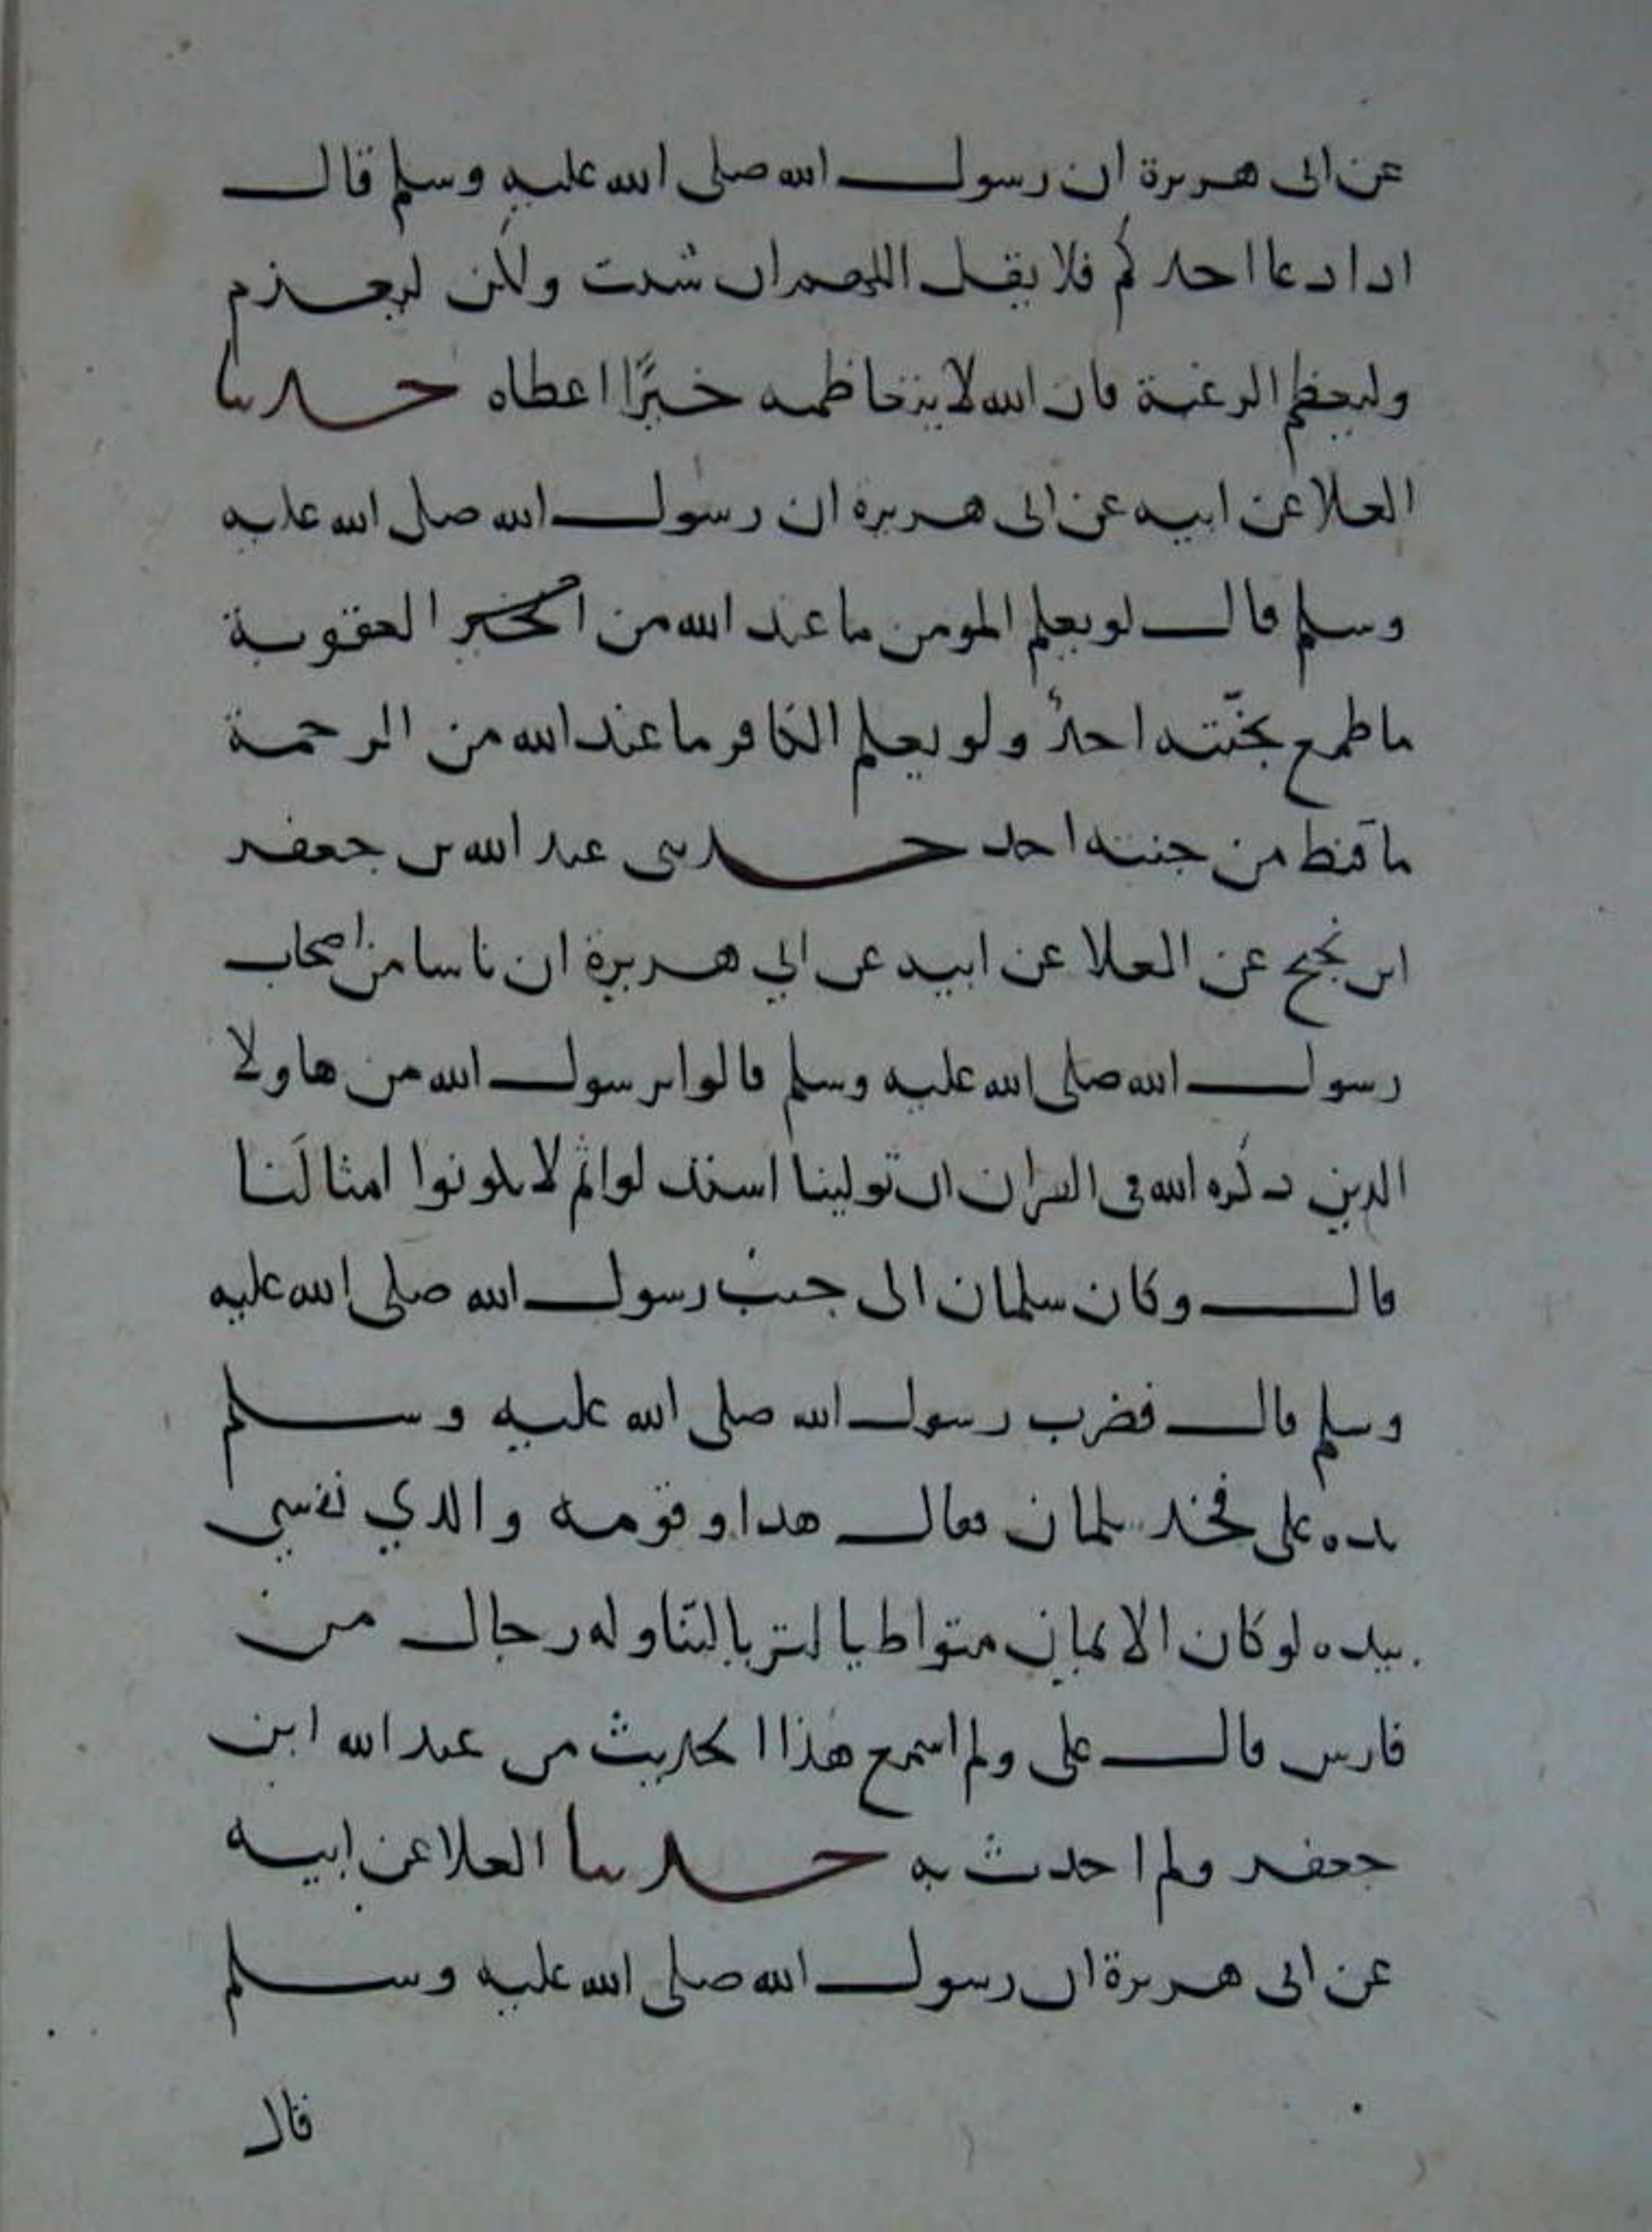 عن ابى هريرة ان رسول الله صلى الله عليه وسلم قال
ادا دعا احدكم فلا يقل اللهم ان شئت ولكن ليعزم
وليعظم الرغبة فان الله لا يتعاظمه خيرًا اعطاه حدثنا
العلا عن ابيه عن ابى هريرة ان رسول الله صلى الله عليه
وسلم قال لو يعلم المومن ما عند الله من العقوبة
ما طمع بجنّته احدٌ ولو يعلم الكافر ما عند الله من الرحمة
ما قنط من جنته احد حدثنى عبد الله بن جعفر
ابن نجيح عن العلا عن ابيه عن ابي هريرة ان ناسا من اصحاب
رسول الله صلى الله عليه وسلم قالوا يرسول الله من هاولا
الدين دكره الله فى القران ان تولينا استبدلوا ثم لا يكونوا امثالنا
قال وكان سلمان الى جنب رسول الله صلى الله عليه
وسلم قال فضرب رسول الله صلى الله عليه وسلم
يده على فخد سلمان فقال هدا وقومه والدي نفسي
بيده لو كان الايمان متواطيا لتناوله رجال من
فارس قال على ولم اسمع هذا الحديث من عبد الله ابن
جعفر ولم احدث به حدثنا العلا عن ابيه
عن ابى هريرة ان رسول الله صلى الله عليه وسلم
قال